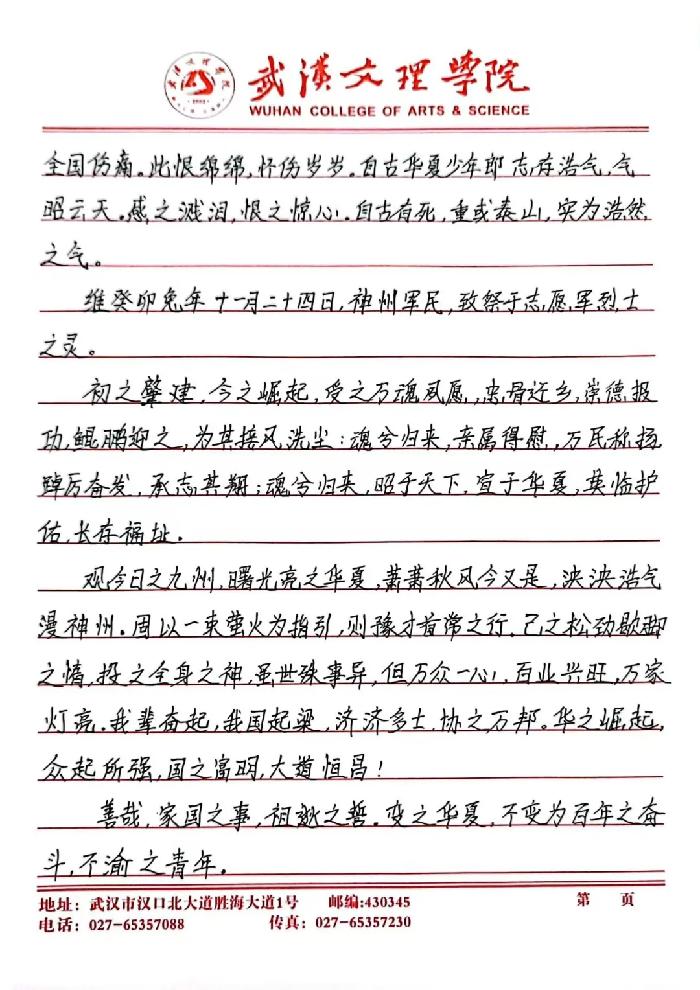 武汉文理学院
WUHAN COLLEGE OF ARTS & SCIENCE
全国伤痛。此恨绵绵,怀伤岁岁。自古华夏少年郎志存浩气,气
昭云天。感之溅泪,恨之惊心。自古有死,重或泰山,实为浩然
之气。
维癸卯兔年十一月二十四日,神州军民,致祭于志愿军烈士
之灵。
初之肇建,今之崛起,受之万魂夙愿,忠骨还乡,崇德报
功,鲲鹏迎之,为其接风洗尘:魂兮归来,亲属得慰,万民称扬
踔厉奋发,承志其翔;魂兮归来,昭于天下,宣于华夏,英临护
佑,长存福址。
观今日之九州,曙光亮之华夏,萧萧秋风今又是,泱泱浩气
漫神州。周以一束萤火为指引,则豫才首常之行,己之松劲歇脚
之情,投之全身之神,虽世殊事异,但万众一心,百业兴旺,万家
灯亮。我辈奋起,我国起梁,济济多士,协之万邦。华之崛起,
众起所强,国之富明,大道恒昌!
善哉,家国之事,祖逖之誓。变之华夏,不变为百年之奋
斗,不渝之青年。
地址:武汉市汉口北大道胜海大道1号 邮编:430345 第 页
电话:027-65357088 传真:027-65357230